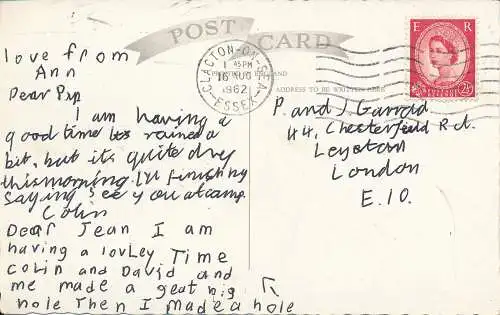 POST CARD
love from
Ann
Dear Pip
I am having a
good time its rained a
bit, but its quite dry
this morning. I'll finish by
saying see you at camp.
Colin
Dear Jean I am
having a lovley Time
Colin and David and
me made a geat big
hole Then I made a hole
CLACTON-ON-SEA,
1 45PM
16 AUG
1962
ESSEX
ADDRESS TO BE WRITTEN HERE
E R
2½D
P. and J. Garrod
44, Chesterfield Rd.
Leyton
London
E.10.